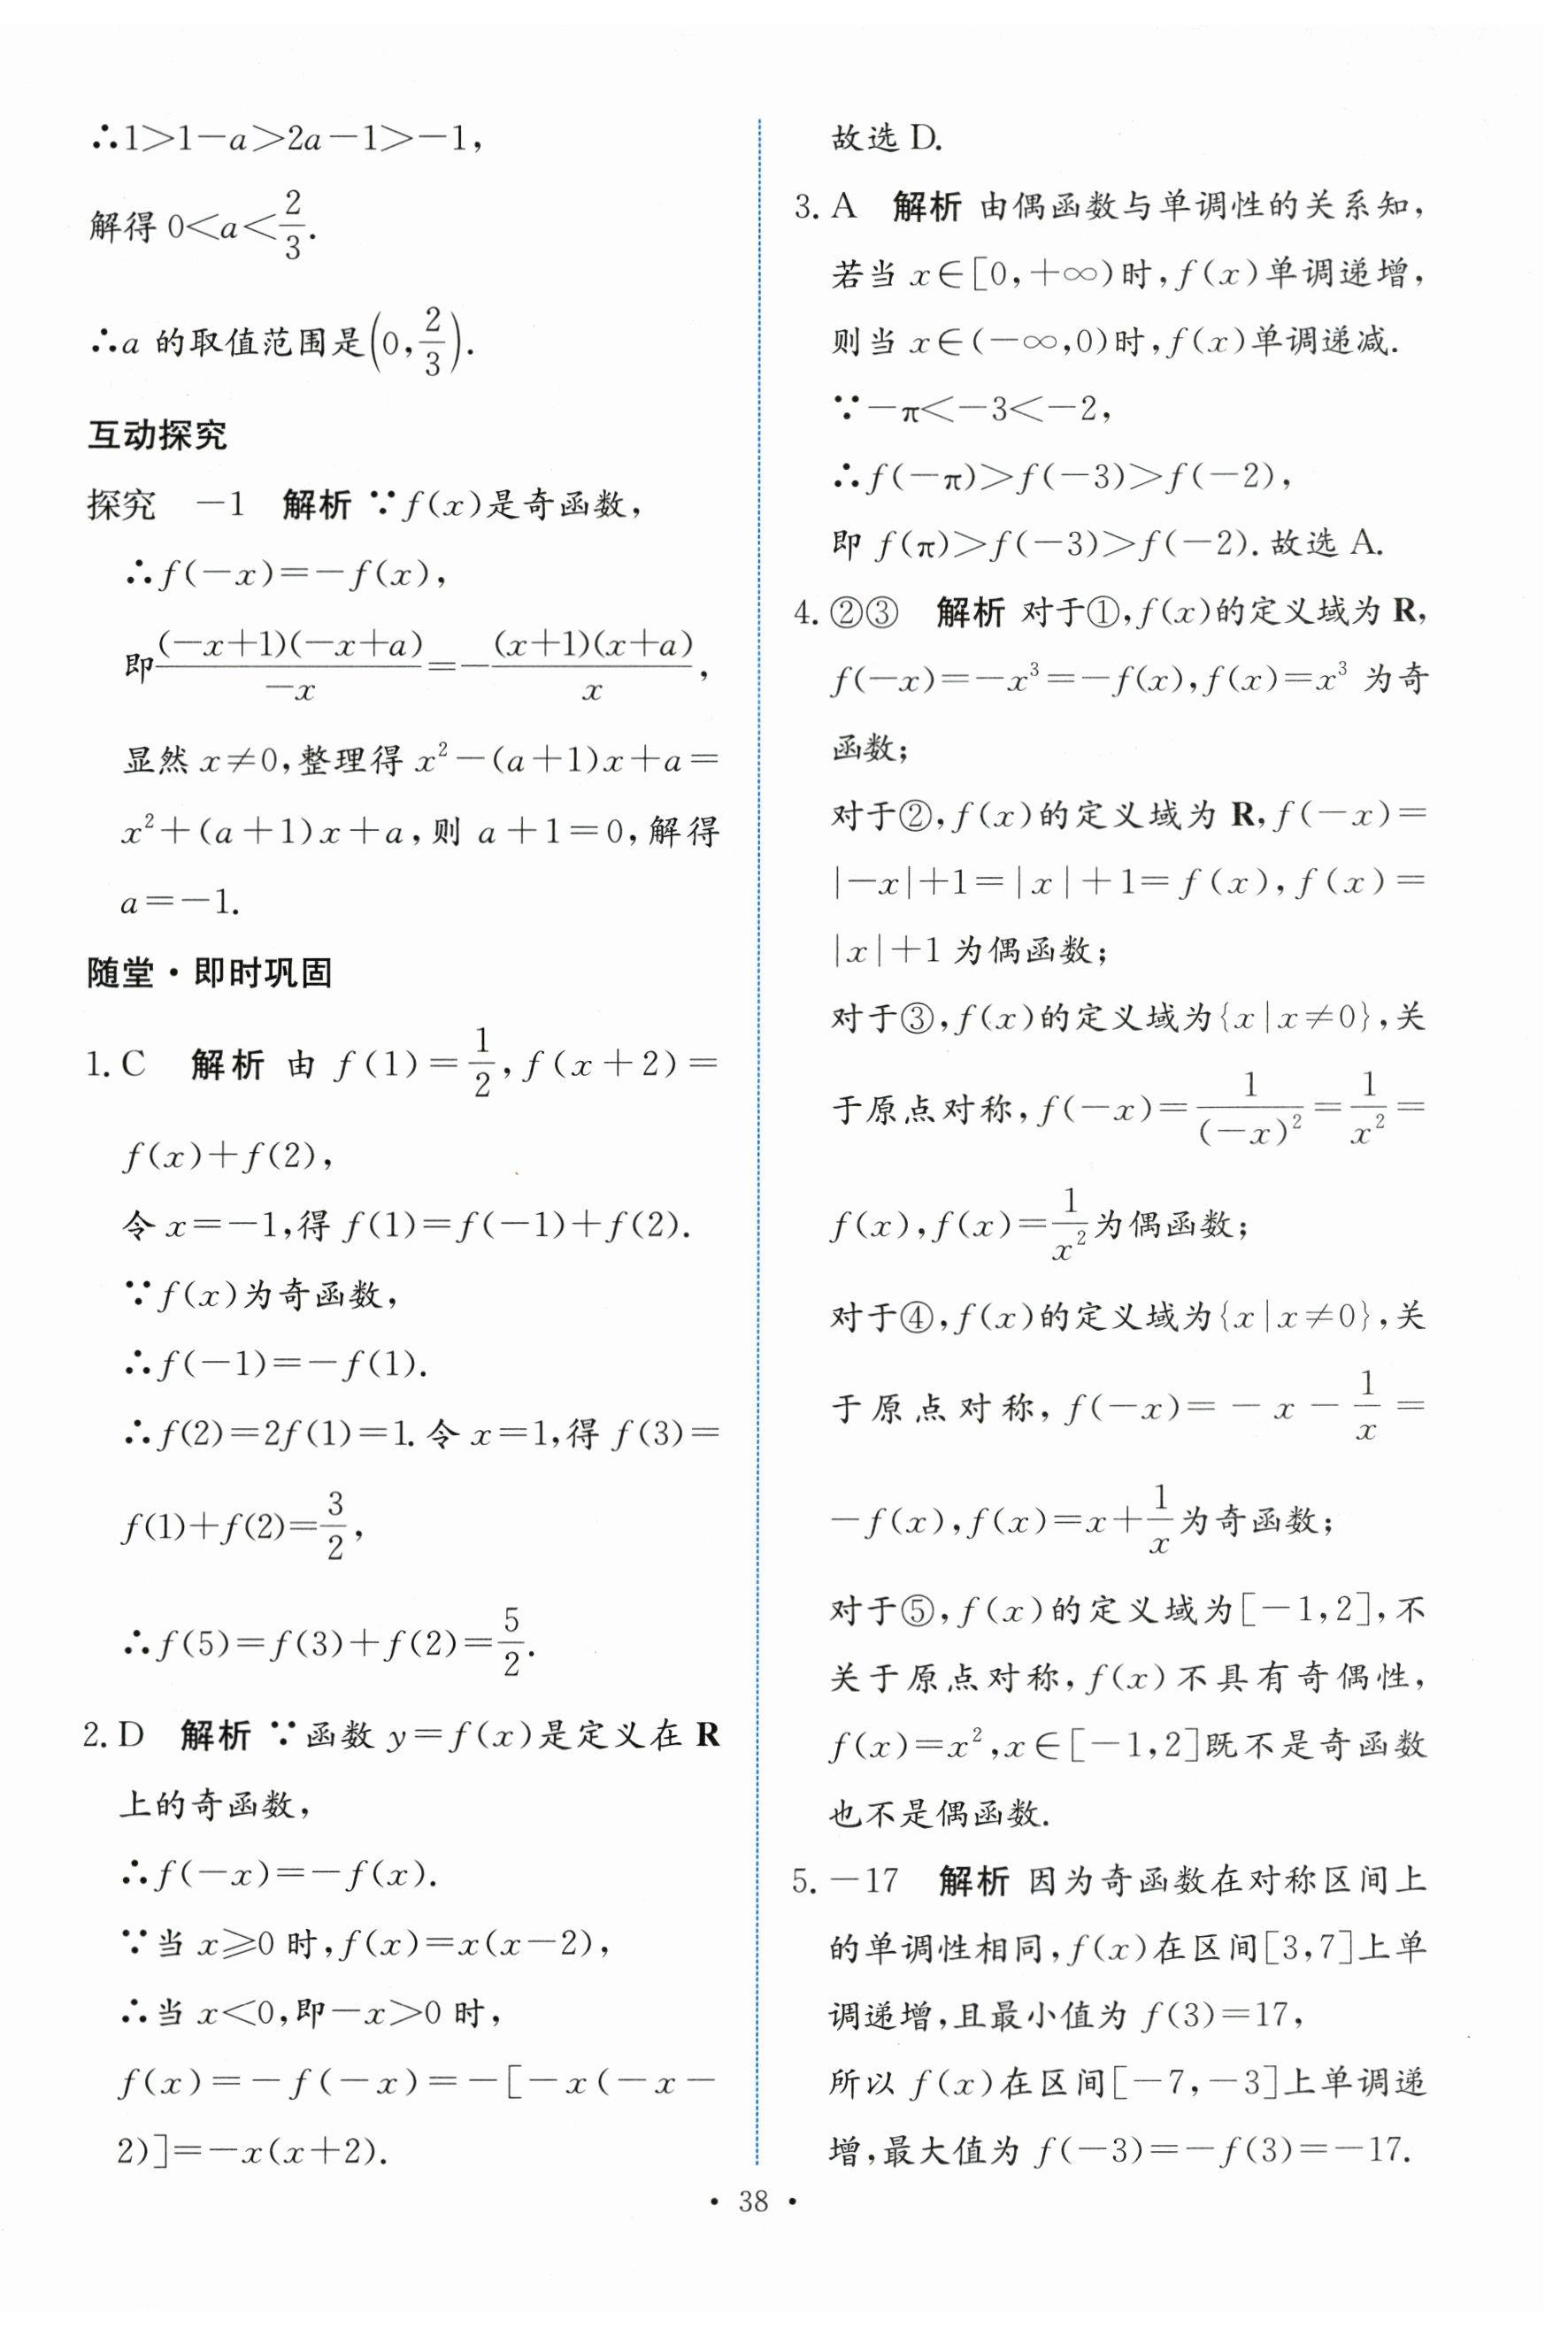 ∴1>1-a>2a-1>-1,
解得 0<a<2/3.
∴a 的取值范围是(0,2/3).
互动探究
探究 -1 解析 ∵f(x)是奇函数,
∴f(-x)=-f(x),
即(-x+1)(-x+a)/-x=-(x+1)(x+a)/x,
显然 x≠0,整理得 x²-(a+1)x+a=
x²+(a+1)x+a,则 a+1=0,解得
a=-1.
随堂·即时巩固
1. C 解析 由 f(1)=1/2,f(x+2)=
f(x)+f(2),
令 x=-1,得 f(1)=f(-1)+f(2).
∵f(x)为奇函数,
∴f(-1)=-f(1).
∴f(2)=2f(1)=1.令 x=1,得 f(3)=
f(1)+f(2)=3/2,
∴f(5)=f(3)+f(2)=5/2.
2. D 解析 ∵函数 y=f(x)是定义在 R
上的奇函数,
∴f(-x)=-f(x).
∵当 x≥0 时,f(x)=x(x-2),
∴当 x<0,即-x>0 时,
f(x)=-f(-x)=-[-x(-x-
2)]=-x(x+2).
故选 D.
3. A 解析 由偶函数与单调性的关系知,
若当 x∈[0,+∞)时,f(x)单调递增,
则当 x∈(-∞,0)时,f(x)单调递减.
∵-π<-3<-2,
∴f(-π)>f(-3)>f(-2),
即 f(π)>f(-3)>f(-2).故选 A.
4. ②③ 解析 对于①,f(x)的定义域为 R,
f(-x)=-x³=-f(x),f(x)=x³ 为奇
函数;
对于②,f(x)的定义域为 R,f(-x)=
|-x|+1=|x|+1=f(x),f(x)=
|x|+1 为偶函数;
对于③,f(x)的定义域为{x|x≠0},关
于原点对称,f(-x)=1/(-x)²=1/x²=
f(x),f(x)=1/x²为偶函数;
对于④,f(x)的定义域为{x|x≠0},关
于原点对称,f(-x)=-x-1/x=
-f(x),f(x)=x+1/x为奇函数;
对于⑤,f(x)的定义域为[-1,2],不
关于原点对称,f(x)不具有奇偶性,
f(x)=x²,x∈[-1,2]既不是奇函数
也不是偶函数.
5. -17 解析 因为奇函数在对称区间上
的单调性相同,f(x)在区间[3,7]上单
调递增,且最小值为 f(3)=17,
所以 f(x)在区间[-7,-3]上单调递
增,最大值为 f(-3)=-f(3)=-17.
• 38 •